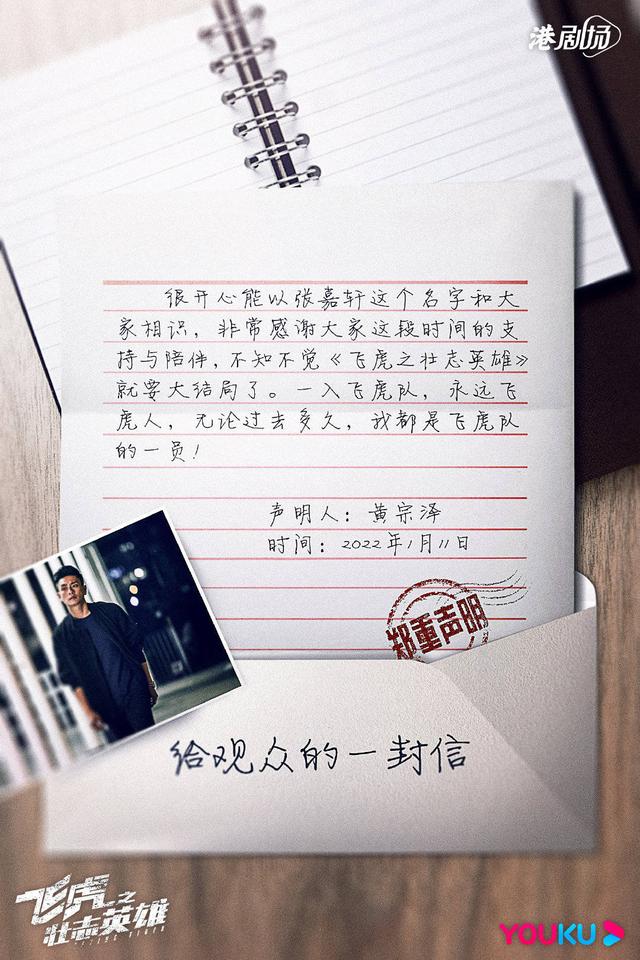 港剧场
很开心能以张嘉轩这个名字和大
家相识，非常感谢大家这段时间的支
持与陪伴，不知不觉《飞虎之壮志英雄》
就要大结局了。一入飞虎队，永远飞
虎人，无论过去多久，我都是飞虎队
的一员！
声明人：黄宗泽
时间：2022年1月11日
郑重声明
给观众的一封信
飞虎之
壮志英雄
YOUKU